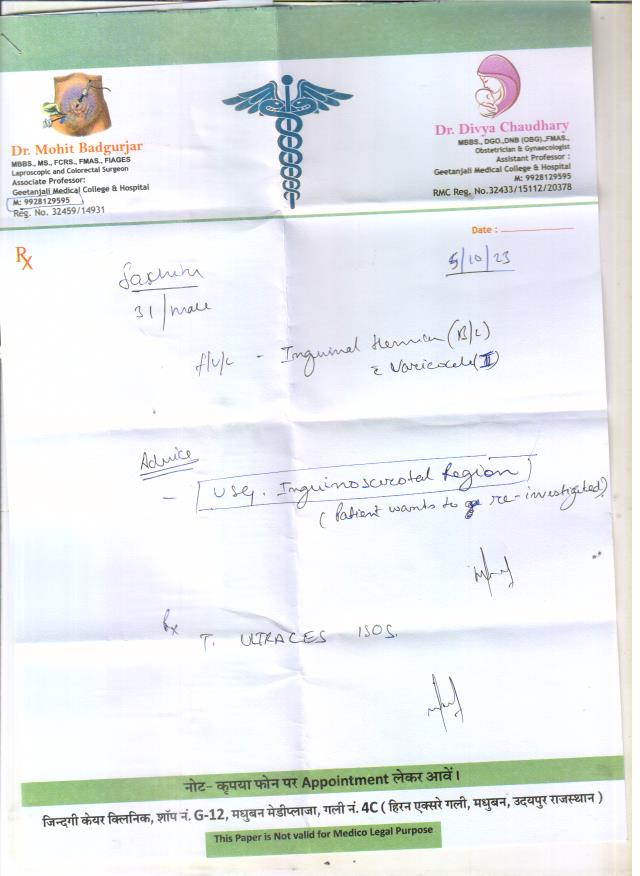 Dr. Mohit Badgurjar
MBBS., MS., FCRS., FMAS., FIAGES
Laproscopic and Colorectal Surgeon
Associate Professor:
Geetanjali Medical College & Hospital
M: 9928129595
Reg. No. 32459/14931
Dr. Divya Chaudhary
MBBS., DGO.,DNB (OBG).,FMAS.,
Obstetrician & Gynaecologist
Assistant Professor :
Geetanjali Medical College & Hospital
M: 9928129595
RMC Reg. No.32433/15112/20378
Date :
5/10/23
Rx
31/male
Inguinal Hernia (B/L)
Varicocele (II)
Advice
- USG. Inguinoscrotal Region
(Patient wants to re-investigated)
Rx
T. ULTRACES
नोट– कृपया फोन पर Appointment लेकर आवें।
जिन्दगी केयर क्लिनिक, शॉप नं. G-12, मधुबन मेडीप्लाजा, गली नं. 4C ( हिरन एक्सरे गली, मधुबन, उदयपुर राजस्थान )
This Paper is Not valid for Medico Legal Purpose